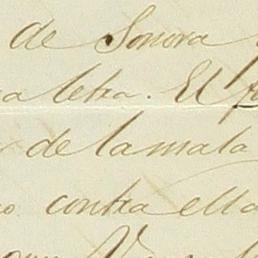 de Sonora
a letra. El
de la mala
o contra ella